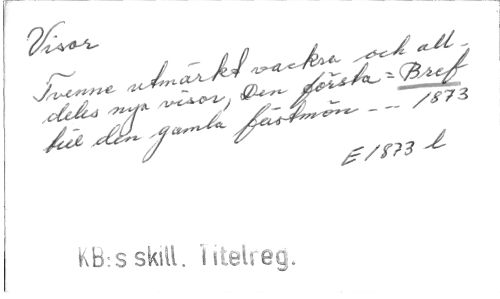 Visor
Tvenne utmärkt vackra och all-
deles nya visor, Den första = Bref
till den gamla fästmön --- 1873
E 1873 l
KB:s skill. Titelreg.